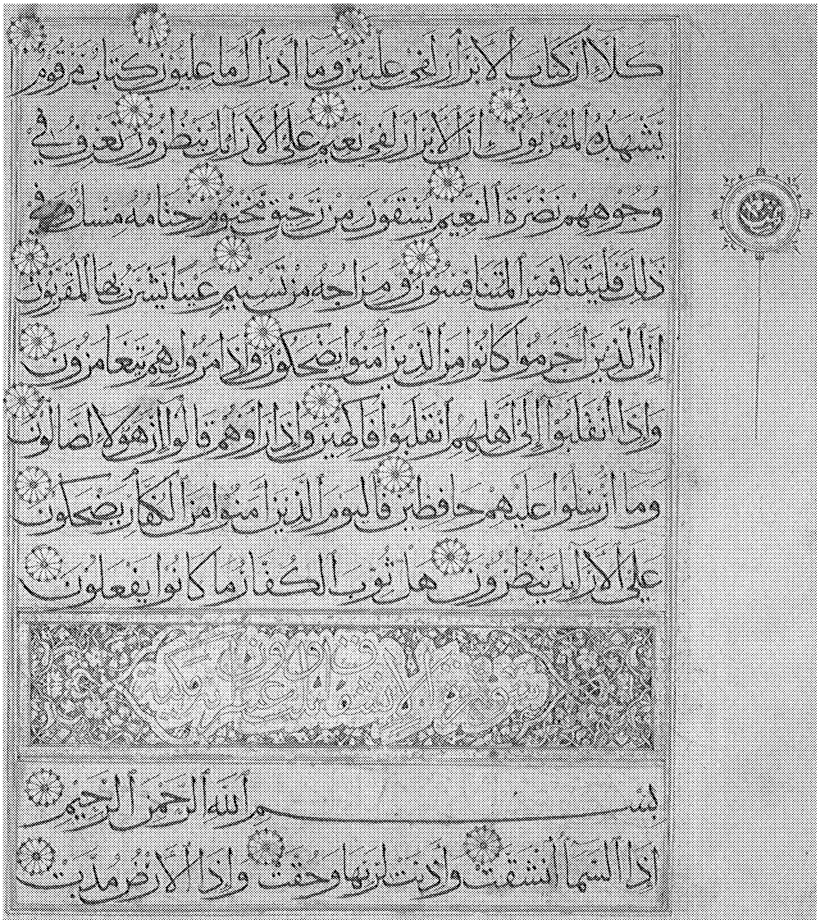 كَلَّا إِنَّ كِتَابَ ٱلْأَبْرَارِ لَفِي عِلِّيِّينَ وَمَا أَدْرَاكَ مَا عِلِّيُّونَ كِتَابٌ مَرْقُومٌ
يَشْهَدُهُ ٱلْمُقَرَّبُونَ إِنَّ ٱلْأَبْرَارَ لَفِي نَعِيمٍ عَلَى ٱلْأَرَآئِكِ يَنْظُرُونَ تَعْرِفُ فِي
وُجُوهِهِمْ نَضْرَةَ ٱلنَّعِيمِ يُسْقَوْنَ مِنْ رَحِيقٍ مَخْتُومٍ خِتَامُهُ مِسْكٌ وَفِي
ذَلِكَ فَلْيَتَنَافَسِ ٱلْمُتَنَافِسُونَ وَمِزَاجُهُ مِنْ تَسْنِيمٍ عَيْنًا يَشْرَبُ بِهَا ٱلْمُقَرَّبُونَ
إِنَّ ٱلَّذِينَ أَجْرَمُوا كَانُوا مِنَ ٱلَّذِينَ آمَنُوا يَضْحَكُونَ وَإِذَا مَرُّوا بِهِمْ يَتَغَامَزُونَ
وَإِذَا ٱنْقَلَبُوٓا إِلَى أَهْلِهِمُ ٱنْقَلَبُوا فَاكِهِينَ وَإِذَا رَأَوْهُمْ قَالُوٓا إِنَّ هَؤُلَآءِ لَضَالُّونَ
وَمَا أُرْسِلُوا عَلَيْهِمْ حَافِظِينَ فَٱلْيَوْمَ ٱلَّذِينَ آمَنُوا مِنَ ٱلْكُفَّارِ يَضْحَكُونَ
عَلَى ٱلْأَرَآئِكِ يَنْظُرُونَ هَلْ ثُوِّبَ ٱلْكُفَّارُ مَا كَانُوا يَفْعَلُونَ
بِسْمِ ٱللَّهِ ٱلرَّحْمَنِ ٱلرَّحِيمِ
إِذَا ٱلسَّمَآءُ ٱنْشَقَّتْ وَأَذِنَتْ لِرَبِّهَا وَحُقَّتْ وَإِذَا ٱلْأَرْضُ مُدَّتْ